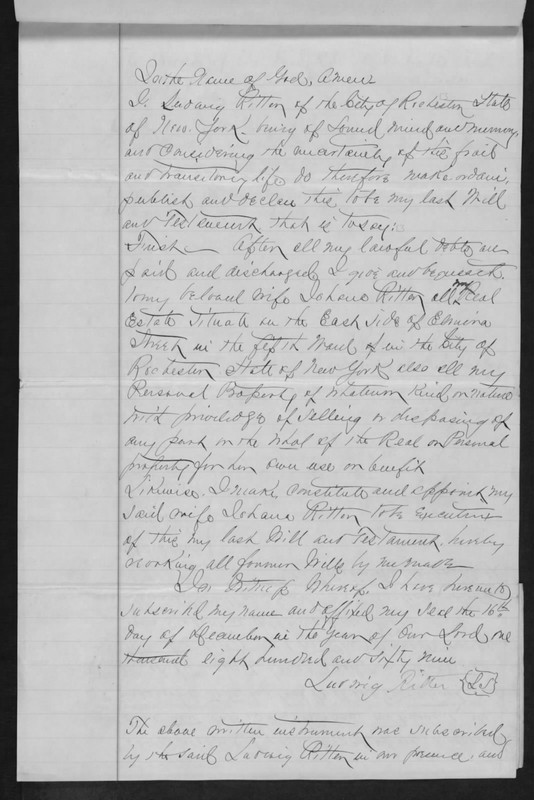 In the Name of God, Amen
I. Ludwig Ritter of the City of Rochester State
of New York. being of Sound mind and memory
and considering the uncertainty of this frail
and transitory life do therefore make ordain,
publish and declare this to be my last Will
and Testament that is to say:
First — After all my lawful debts are
paid and discharged I give and bequeath
to my beloved wife Johana Ritter all my Real
Estate Situate on the East Side of
Street in the fifth Ward of in the City of
Rochester State of New York also all my
Personal Property of whatever Kind or nature
with privilege of Selling or disposing of
any part or the whol of the Real or Personal
property for her own use or benefit
Likewise. I make constitute and appoint my
said wife Johana Ritter to be Executrix
of this my last Will and Testament. hereby
revoking all former Wills by me made
In Witness Whereof, I have hereunto
subscribed my name and affixed my Seal the 16th
day of December in the Year of Our Lord one
thousand eight hundred and sixty nine
Ludwig Ritter {L.S}
The above written instrument was subscribed
by the said Ludwig Ritter in our presence and